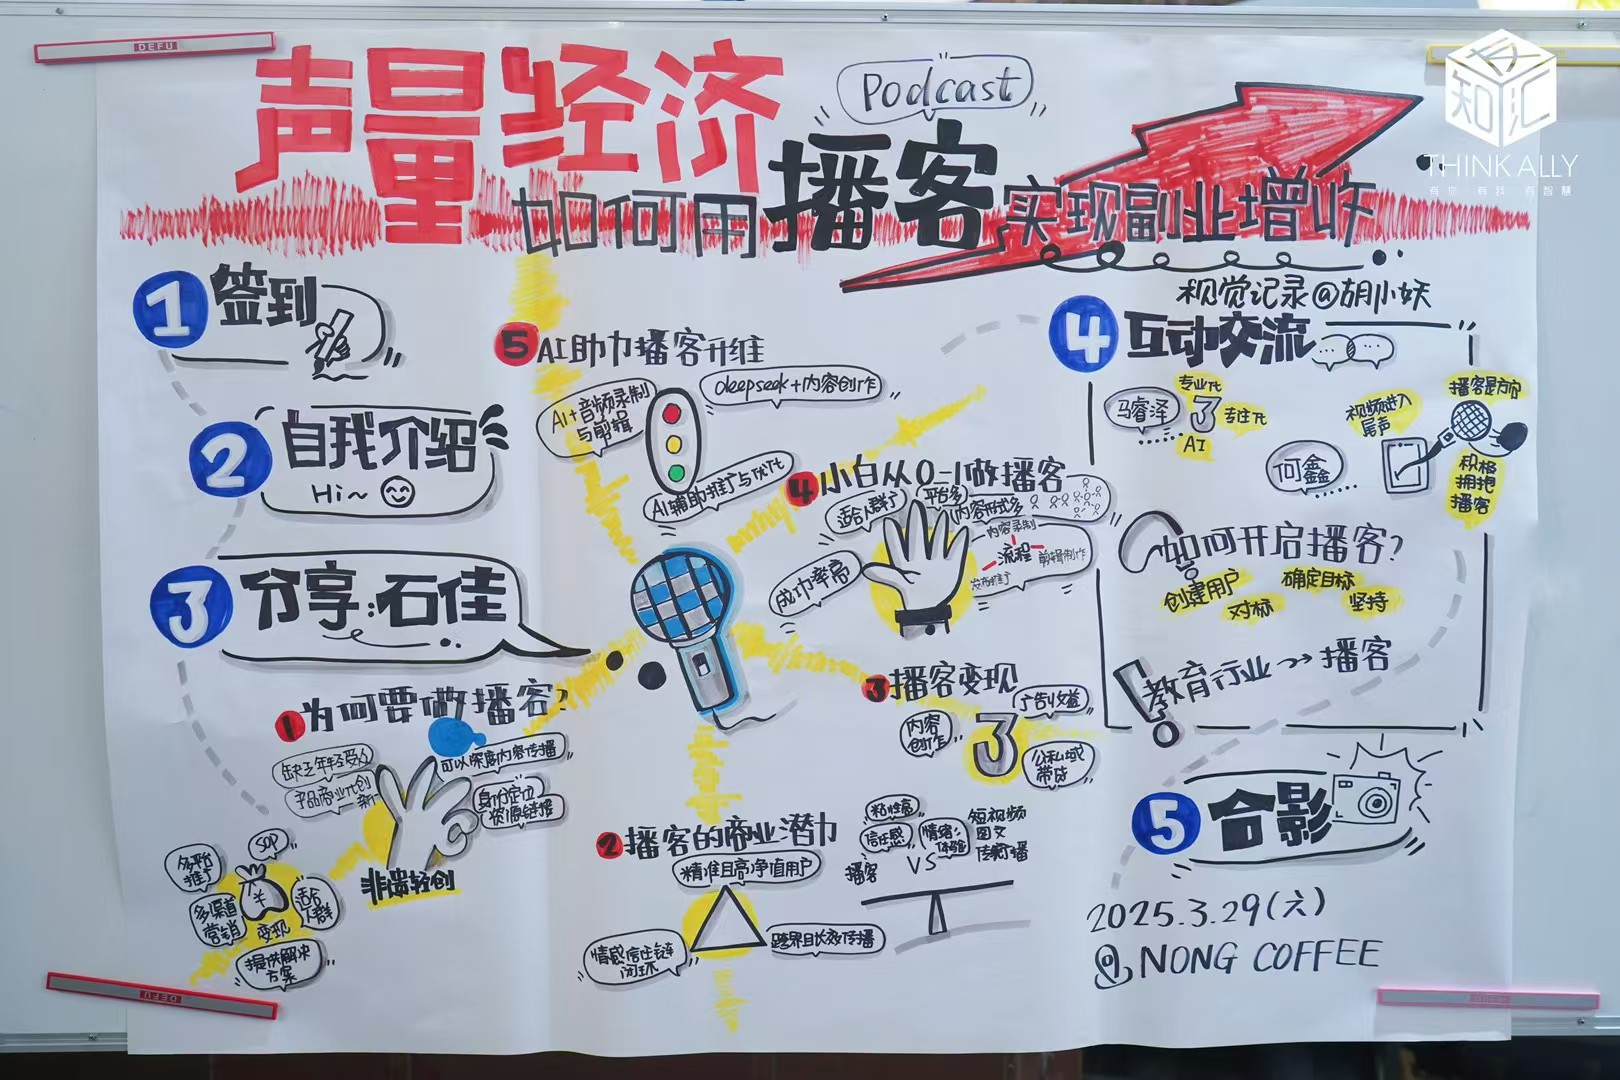 DEFU
声量经济
Podcast
如何用播客实现副业增收
知汇
THINK ALLY
有你 有我 有智慧
视觉记录@胡小妖
1 签到
2 自我介绍
Hi~
3 分享:石佳
1 为何要做播客?
缺乏年轻受众
产品商业化创新
可以深度内容传播
身份定位
资源链接
非遗轻创
SOP
多平台推广
多渠道营销
¥
变现
适合人群
提供解决方案
2 播客的商业潜力
精准且高净值用户
情感信任链闭环
跨界且长效传播
粘性高
信任感
情绪体验
播客
VS
短视频
图文
传统播
3 播客变现
内容创作
3
广告收益
公私域带货
4 小白从0-1做播客
适合人群广
平台多
内容形式多
成功率高
流程
内容录制
剪辑制作
发布推广
5 AI助力播客升维
AI+音频录制与剪辑
deepseek+内容创作
AI辅助推广与优化
4 互动交流
马睿泽
3
专业化
专注化
AI
何鑫
视频进入尾声
播客是方向
积极拥抱播客
如何开启播客?
创建用户
对标
确定目标
坚持
教育行业→播客
5 合影
2025.3.29(六)
NONG COFFEE
DEFU